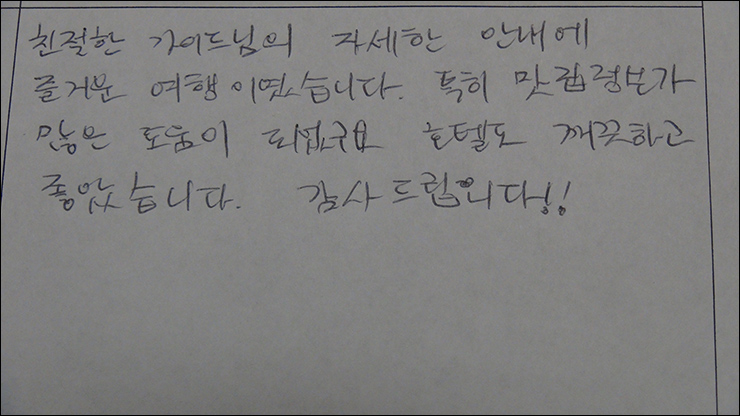 친절한 가이드님의 자세한 안내에
즐거운 여행이였습니다. 특히 맛집정보가
많은 도움이 되었구요 호텔도 깨끗하고
좋았습니다. 감사드립니다!!